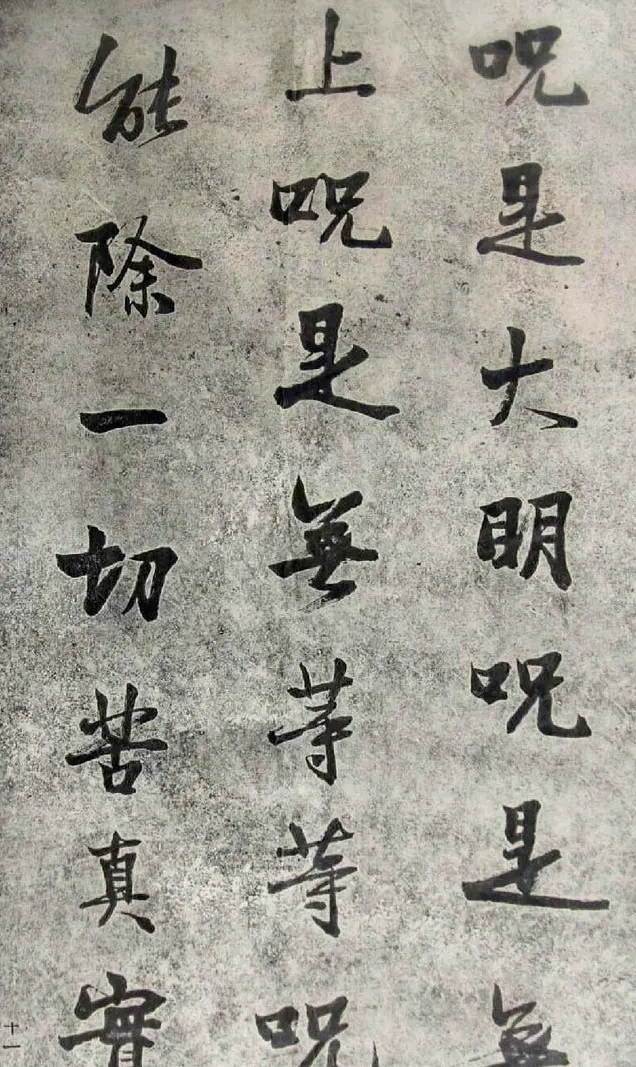 呪是大明呪是無
上呪是無等等呪
能除一切苦真實
十一